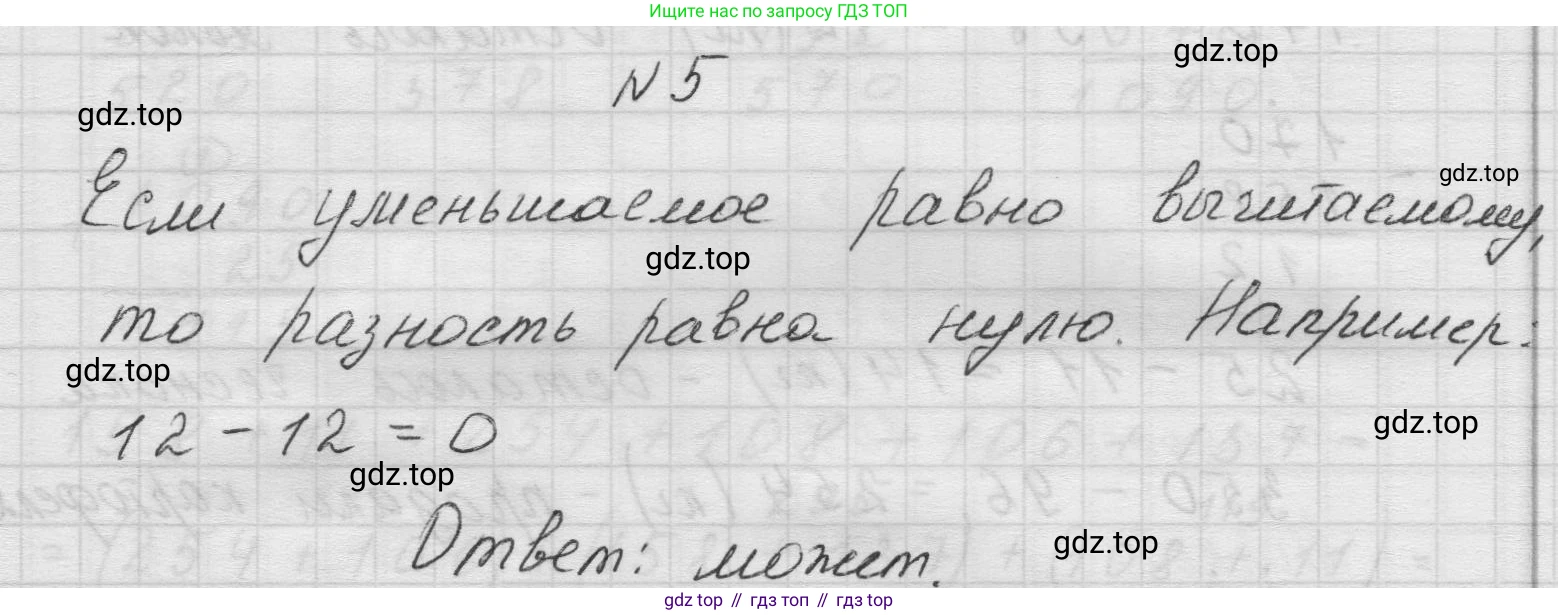 Ищите нас по запросу ГДЗ ТОП
gdz.top
№5
gdz.top
Если уменьшаемое равно вычитаемому,
gdz.top
gdz.top
то разность равна нулю. Например:
gdz.top
12 - 12 = 0
gdz.top
gdz.top
Ответ: может.
gdz.top
gdz top // гдз топ // gdz top